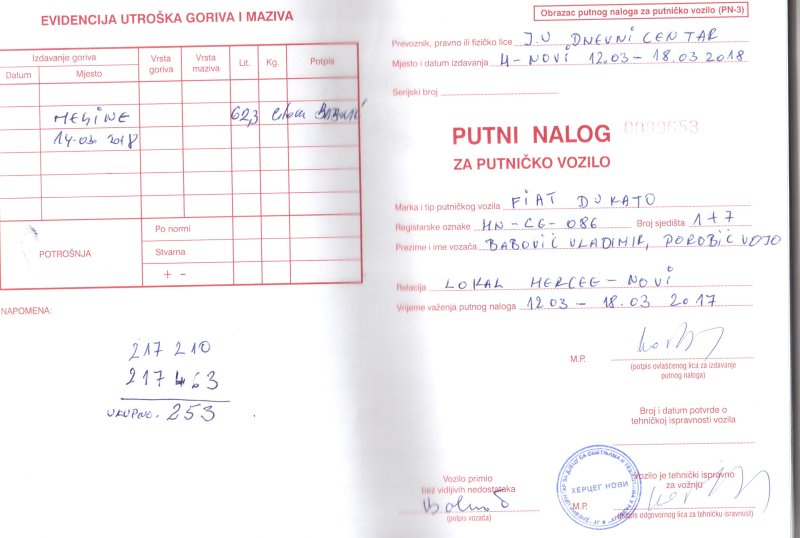 EVIDENCIJA UTROŠKA GORIVA I MAZIVA
Izdavanje goriva
Datum
Mjesto
Vrsta goriva
Vrsta maziva
Lit.
Kg.
Potpis
MELINE
62,3
14-03 2018
POTROŠNJA
Po normi
Stvarna
+ −
NAPOMENA:
217 210
217 463
UKUPNO. 253
Obrazac putnog naloga za putničko vozilo (PN-3)
Prevoznik, pravno ili fizičko lice J.U DNEVNI CENTAR
Mjesto i datum izdavanja H-NOVI 12.03-18.03 2018
Serijski broj
PUTNI NALOG 0000653
ZA PUTNIČKO VOZILO
Marka i tip putničkog vozila FIAT DUKATO
Registarske oznake HN-CG-086 Broj sjedišta 1+7
Prezime i ime vozača BABOVIĆ VLADIMIR, POROBIĆ VOJO
Relacija LOKAL HERCEG-NOVI
Vrijeme važenja putnog naloga 12 03 - 18.03 2017
M.P.
(potpis ovlašćenog lica za izdavanje
putnog naloga)
Broj i datum potvrde o
tehničkoj ispravnosti vozila
Vozilo primio
bez vidljivih nedostataka
(potpis vozača)
ХЕРЦЕГ НОВИ
Vozilo je tehnički ispravno
za vožnju
M.P.
(potpis odgovornog lica za tehničku ispravnost)